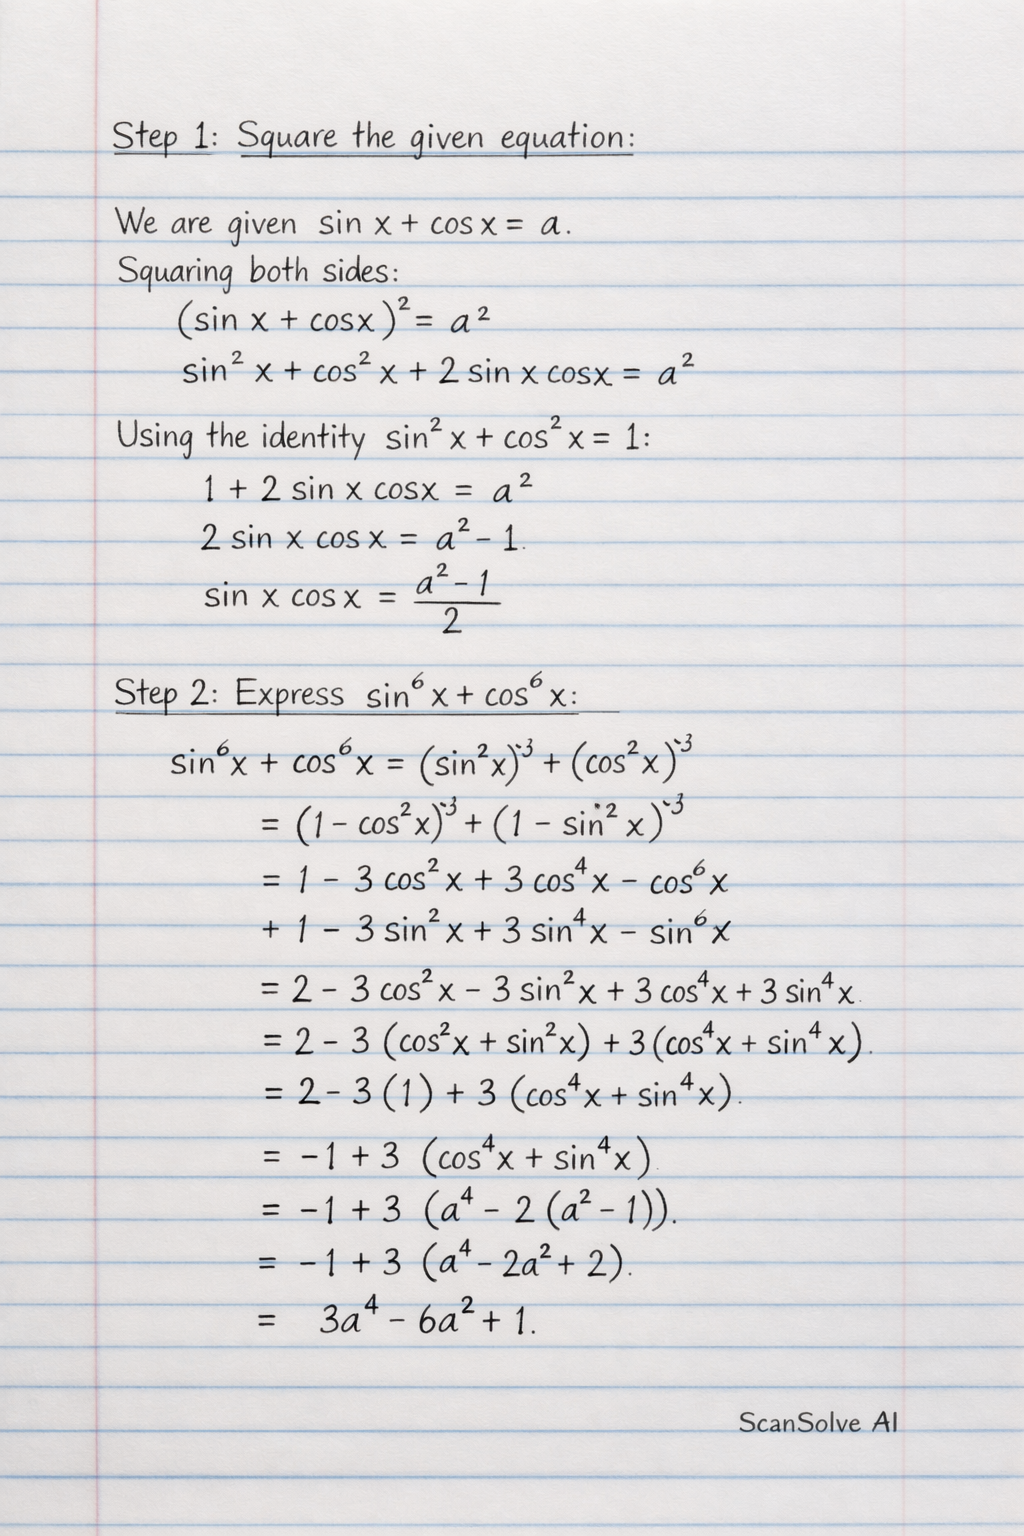 Step 1: Square the given equation:
We are given sin x + cos x = a.
Squaring both sides:
(sin x + cosx)² = a²
sin² x + cos² x + 2 sin x cosx = a²
Using the identity sin² x + cos² x = 1:
1 + 2 sin x cosx = a²
2 sin x cos x = a² - 1.
sin x cos x = (a² - 1)/2
Step 2: Express sin⁶ x + cos⁶ x:
sin⁶x + cos⁶x = (sin²x)³ + (cos²x)³
= (1 - cos²x)³ + (1 - sin² x)³
= 1 - 3 cos² x + 3 cos⁴x - cos⁶x
+ 1 - 3 sin² x + 3 sin⁴x - sin⁶x
= 2 - 3 cos²x - 3 sin²x + 3 cos⁴x + 3 sin⁴x.
= 2 - 3 (cos²x + sin²x) + 3(cos⁴x + sin⁴ x).
= 2 - 3 (1) + 3 (cos⁴x + sin⁴x).
= -1 + 3 (cos⁴x + sin⁴x)
= -1 + 3 (a⁴ - 2 (a² - 1)).
= -1 + 3 (a⁴ - 2a² + 2).
= 3a⁴ - 6a² + 1.
ScanSolve AI